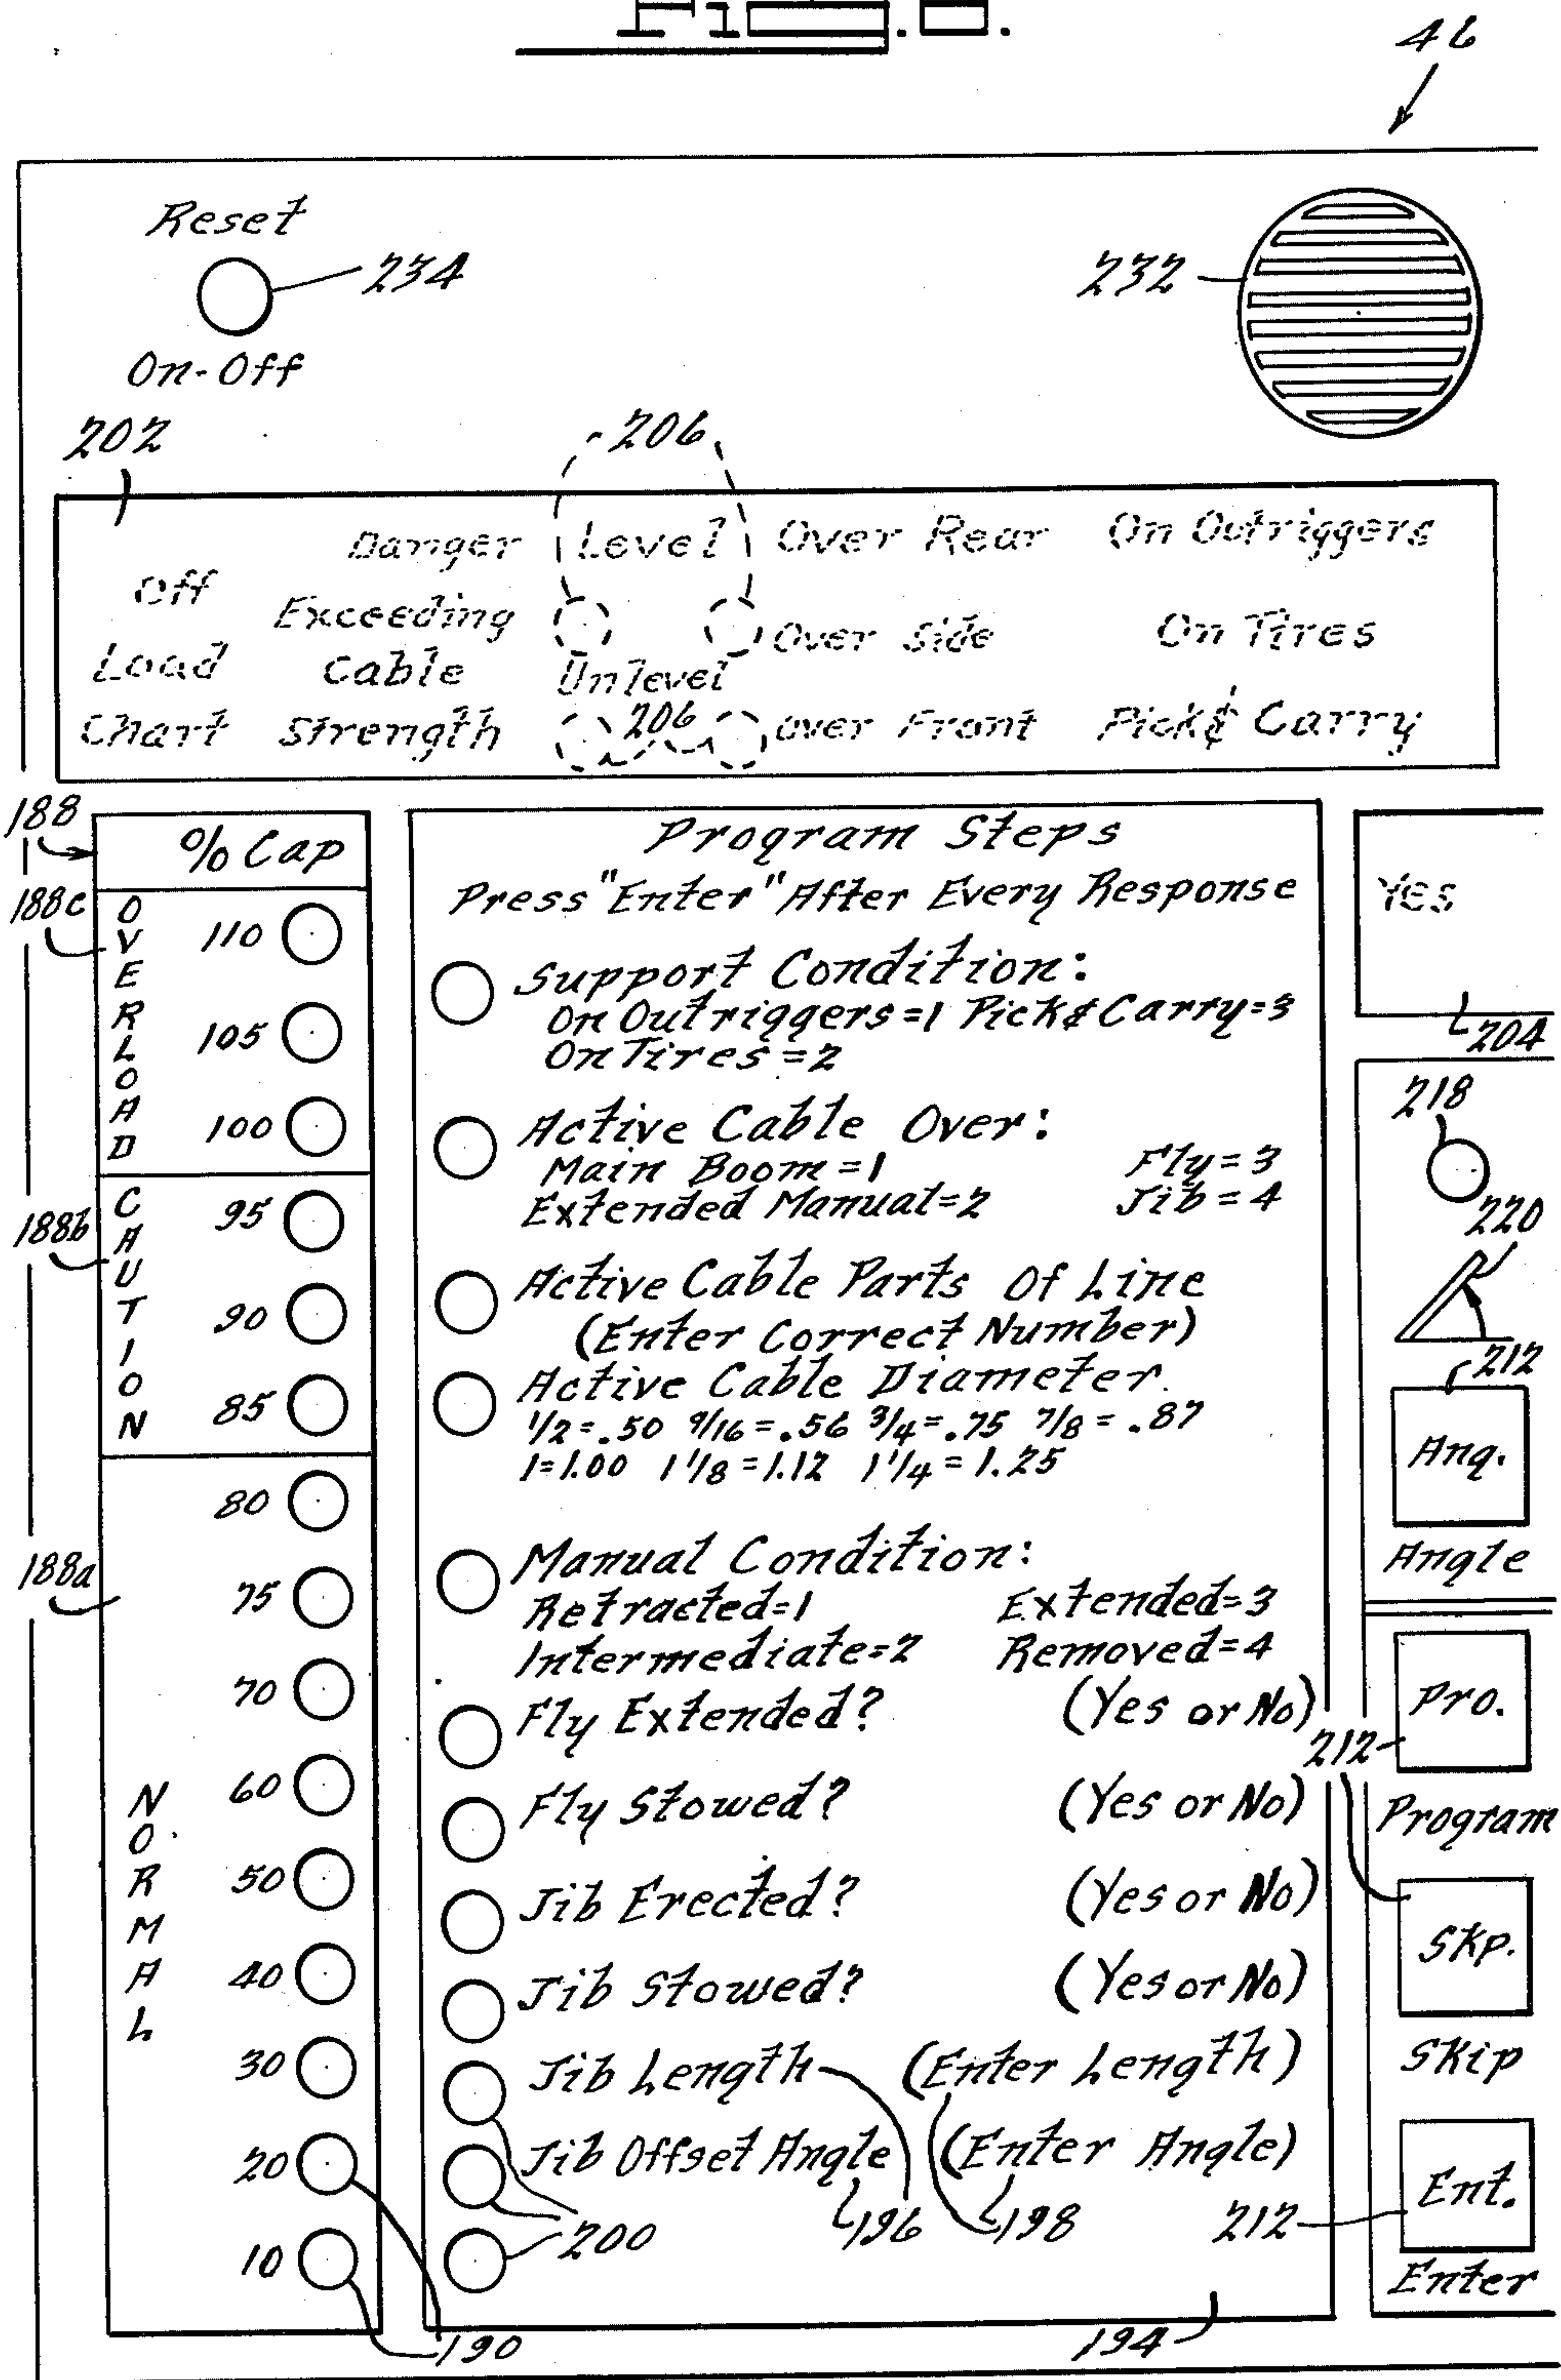 46
Reset
234
232
On-Off
202
206
Danger Level Over Rear On Outriggers
Off Exceeding Over Side On Tires
Load Cable Unlevel
Chart Strength 206 Over Front Pick & Carry
188
% Cap
188c
OVERLOAD
110
105
100
188b
CAUTION
95
90
85
188a
NORMAL
80
75
70
60
50
40
30
20
10
190
Program Steps
Press "Enter" After Every Response
Support Condition:
On Outriggers=1 Pick & Carry=3
On Tires=2
Active Cable Over:
Main Boom=1 Fly=3
Extended Manual=2 Jib=4
Active Cable Parts Of Line
(Enter Correct Number)
Active Cable Diameter
1/2=.50 9/16=.56 3/4=.75 7/8=.87
1=1.00 1 1/8=1.12 1 1/4=1.25
Manual Condition:
Retracted=1 Extended=3
Intermediate=2 Removed=4
Fly Extended? (Yes or No)
Fly Stowed? (Yes or No)
Jib Erected? (Yes or No)
Jib Stowed? (Yes or No)
Jib Length (Enter Length)
Jib Offset Angle (Enter Angle)
200
196
198
194
Yes
204
218
220
212
Ang.
Angle
Pro.
212
Program
Skp.
Skip
212
Ent.
Enter